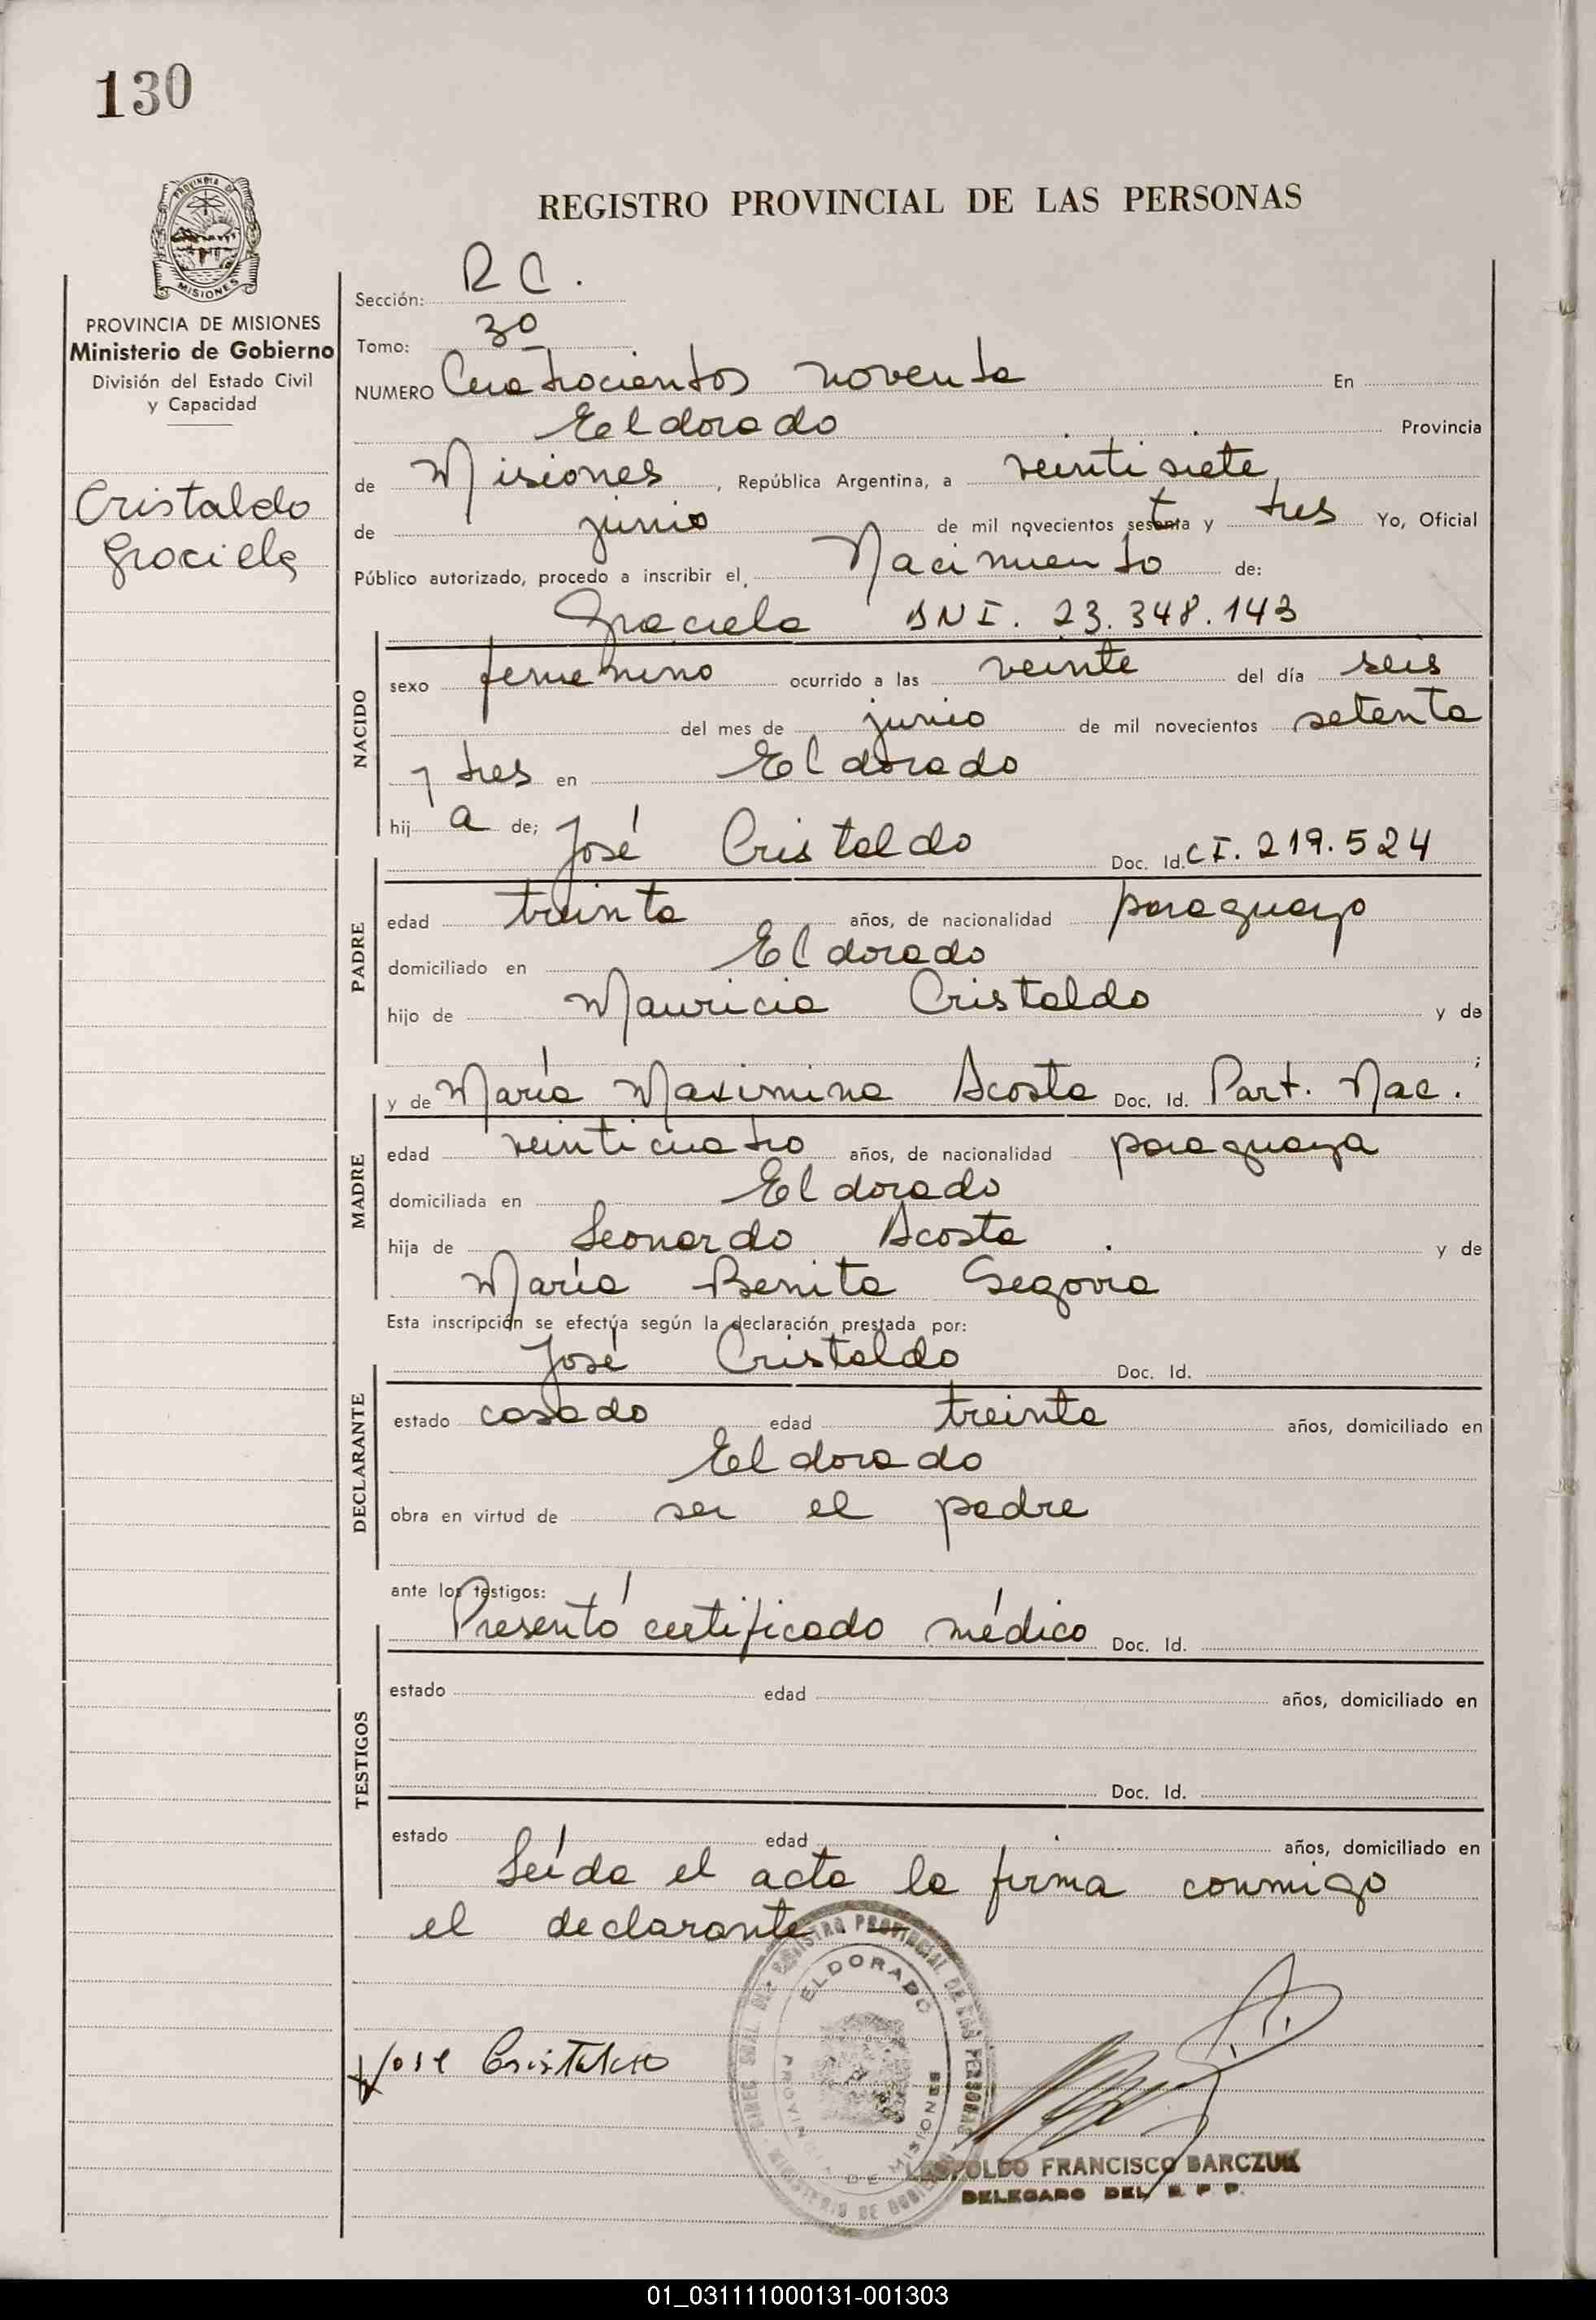 130
PROVINCIA DE
MISIONES
PROVINCIA DE MISIONES
Ministerio de Gobierno
División del Estado Civil
y Capacidad
Cristaldo
Graciela
REGISTRO PROVINCIAL DE LAS PERSONAS
Sección: R C.
Tomo: 3º
NUMERO Cuatrocientos noventa En
Eldorado Provincia
de Misiones, República Argentina, a veintisiete
de junio de mil novecientos setenta y tres Yo, Oficial
Público autorizado, procedo a inscribir el Nacimiento de:
Graciela DNI. 23.348.143
NACIDO
sexo femenino ocurrido a las veinte del día seis
del mes de junio de mil novecientos setenta
y tres en Eldorado
hij a de; José Cristaldo Doc. Id. CI. 219.524
PADRE
edad treinta años, de nacionalidad paraguayo
domiciliado en Eldorado
hijo de Mauricia Cristaldo y de
;
y de María Maximina Acosta Doc. Id. Part. Nac.
MADRE
edad veinticuatro años, de nacionalidad paraguaya
domiciliada en Eldorado
hija de Leonardo Acosta y de
María Benita Segovia
Esta inscripción se efectúa según la declaración prestada por:
José Cristaldo Doc. Id.
DECLARANTE
estado casado edad treinta años, domiciliado en
Eldorado
obra en virtud de ser el padre
ante los testigos:
Presentó certificado médico Doc. Id.
TESTIGOS
estado edad años, domiciliado en
Doc. Id.
estado edad años, domiciliado en
Leída el acta la firma conmigo
el declarante
José Cristaldo
REGISTRO PROVINCIAL DE LAS PERSONAS
ELDORADO
PROVINCIA DE MISIONES
MINISTERIO DE GOBIERNO
LEOPOLDO FRANCISCO BARCZUK
DELEGADO DEL R. P. P.
01_031111000131-001303